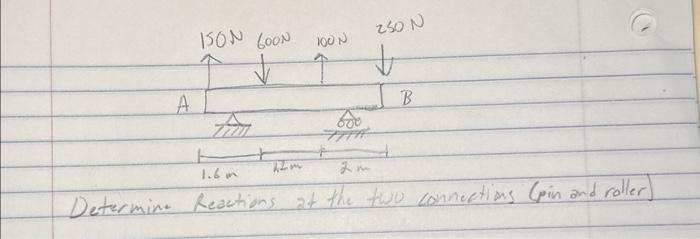 150N 600N 100N 250N
A B
1.6m 1.2m 2m
Determine Reactions at the two connections (pin and roller)